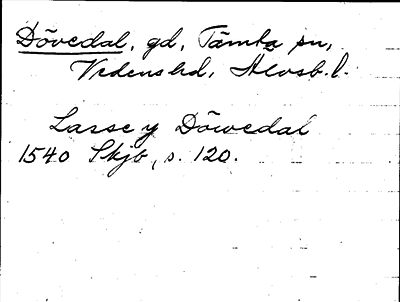 Dövedal, gd, Tämta sn,
Vedens hd, Älvsb. l.
Lasse y Döwedal
1540 Skjb, s. 120.